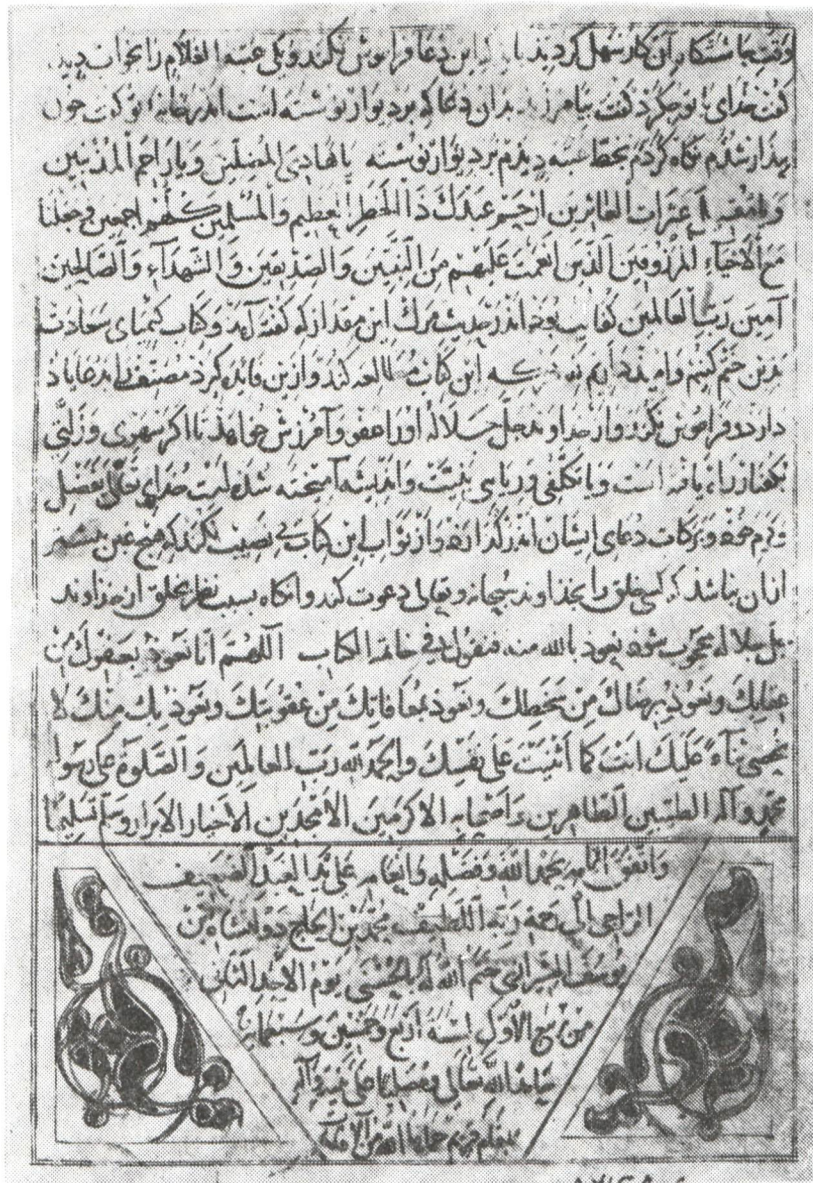 وقت بامن آن کار سهل کردید این دعا فراموش نکند و یکی عتبة الغلام را بخواب دید
گفت خدای با تو چه کرد گفت بیامرزید بدان دعا که بر دیوار نوشته است اندر خانه تو گفت چون
بیدار شدم نگاه کردم بخط عتبه دیدم بر دیوار نوشته یا هادی المضلین ویا راحم المذنبین
ویا مقیل عثرات العاثرین ارحم عبدک ذا الخطر العظیم والمسلمین کلهم اجمعین واجعلنا
مع الاحیاء المرزوقین الذین انعمت علیهم من النبیین والصدیقین والشهداء والصالحین
آمین رب العالمین کفایت بود اندر حدیث مرگ این مقدار که گفته آمد و کتاب کیمیای سعادت
بدین ختم کنیم و امید داریم که هر که این کتاب مطالعه کند و ازین فایده گیرد مصنف را بدعا یاد
دارد و فراموش نکند و از خداوند جل جلاله او را عفو و آمرزش خواهد تا اگر سهوی و زلتی
بگفتار راه یافته است و یا تکلفی و ریایی بنیت و اندیشه آمیخته شده است خدای تعالی بفضل
و کرم خود و برکات دعای ایشان اندر گذارد و از ثواب این کتاب بی نصیب نکند که هیچ غبن بیشتر
از آن نباشد که کسی خلق را بخداوند سبحانه و تعالی دعوت کند و آنگاه بسبب نظر بخلق از خداوند
جل جلاله محجوب شود نعوذ بالله منه فنقول فی خاتمة الکتاب اللهم انا نعوذ بعفوک من
عقابک ونعوذ برضاک من سخطک ونعوذ بمعافاتک من عقوبتک ونعوذ بک منک لا
نحصی ثناء علیک انت کما اثنیت علی نفسک والحمد لله رب العالمین والصلوة علی رسوله
محمد وآله الطیبین الطاهرین واصحابه الاکرمین الامجدین الاخیار الابرار وسلم تسلیما
واتفق اتمامه بحمد الله وفضله وانعامه علی ید العبد الضعیف
الراجی الی رحمة ربه اللطیف محمد بن الحاج دولتشاه بن
یوسف الشیرازی ختم الله له بالحسنی یوم الاحد الثانی
من ربیع الاول لسنة اربع وخمسین وسبعمایة
حامدا لله تعالی ومصلیا علی نبیه وآله